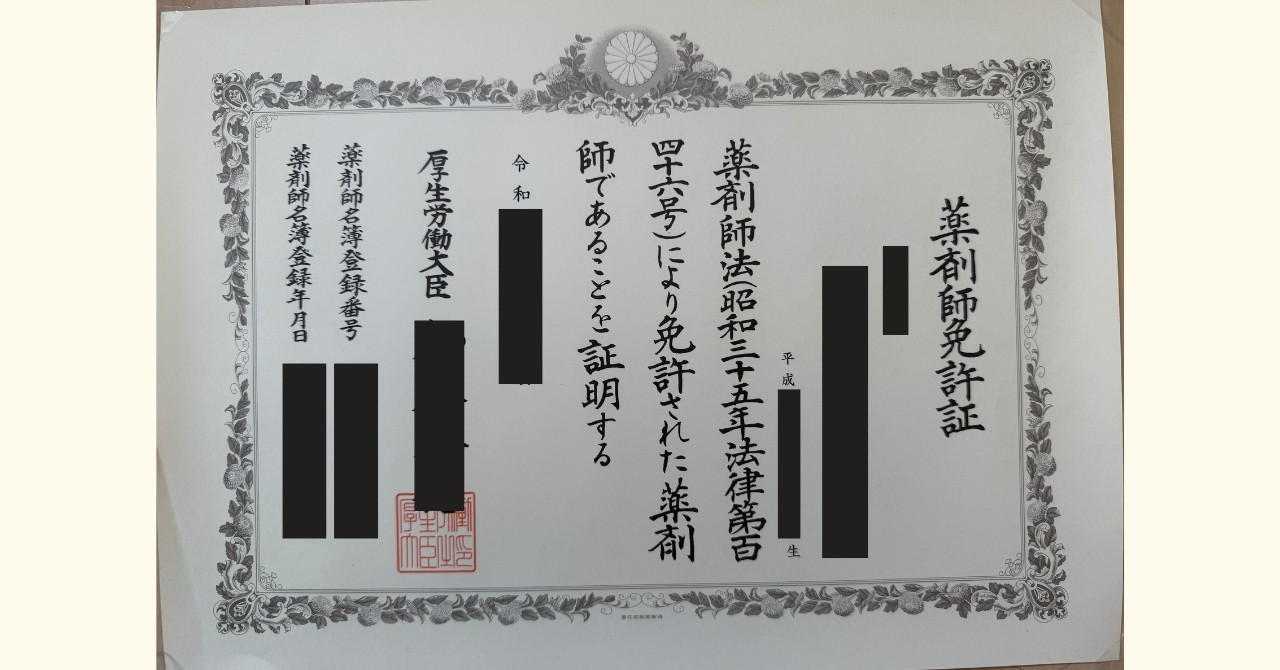 薬剤師免許証
平成
生
薬剤師法(昭和三十五年法律第百
四十六号)により免許された薬剤
師であることを証明する
令和
厚生労働大臣
薬剤師名簿登録番号
薬剤師名簿登録年月日